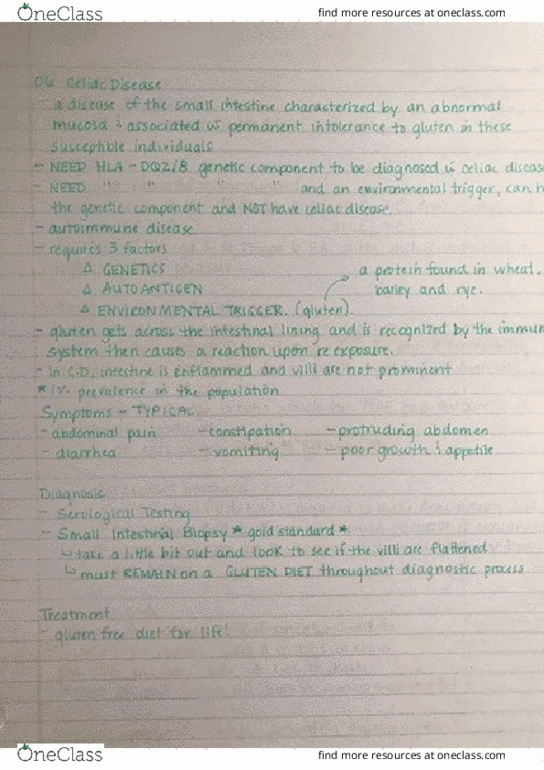 OneClass
find more resources at oneclass.com
Celiac Disease
- a disease of the small intestine characterized by an abnormal
mucosa & associated w permanent intolerance to gluten in these
susceptible individuals
- NEED HLA - DQ2/8 genetic component to be diagnosed w celiac diseas
- NEED " " " " and an environmental trigger, can h
the genetic component and NOT have celiac disease.
- autoimmune disease
- requires 3 factors
Δ GENETICS
a protein found in wheat.
Δ AUTOANTIGEN
barley and rye.
Δ ENVIRONMENTAL TRIGGER. (gluten).
- gluten gets across the intestinal lining and is recognized by the immun
system then causes a reaction upon re exposure.
- In C.D, intestine is enflammed and villi are not prominent
* 1% prevalence in the population
Symptoms - TYPICAL
- abdominal pain - constipation - protruding abdomen
- diarrhea - vomiting - poor growth & appetite
Diagnosis
- Serological Testing
- Small Intestinal Biopsy * gold standard *
↳ take a little bit out and look to see if the villi are flattened
↳ must REMAIN on a GLUTEN DIET throughout diagnostic process
Treatment
- gluten free diet for life!
OneClass
find more resources at oneclass.com